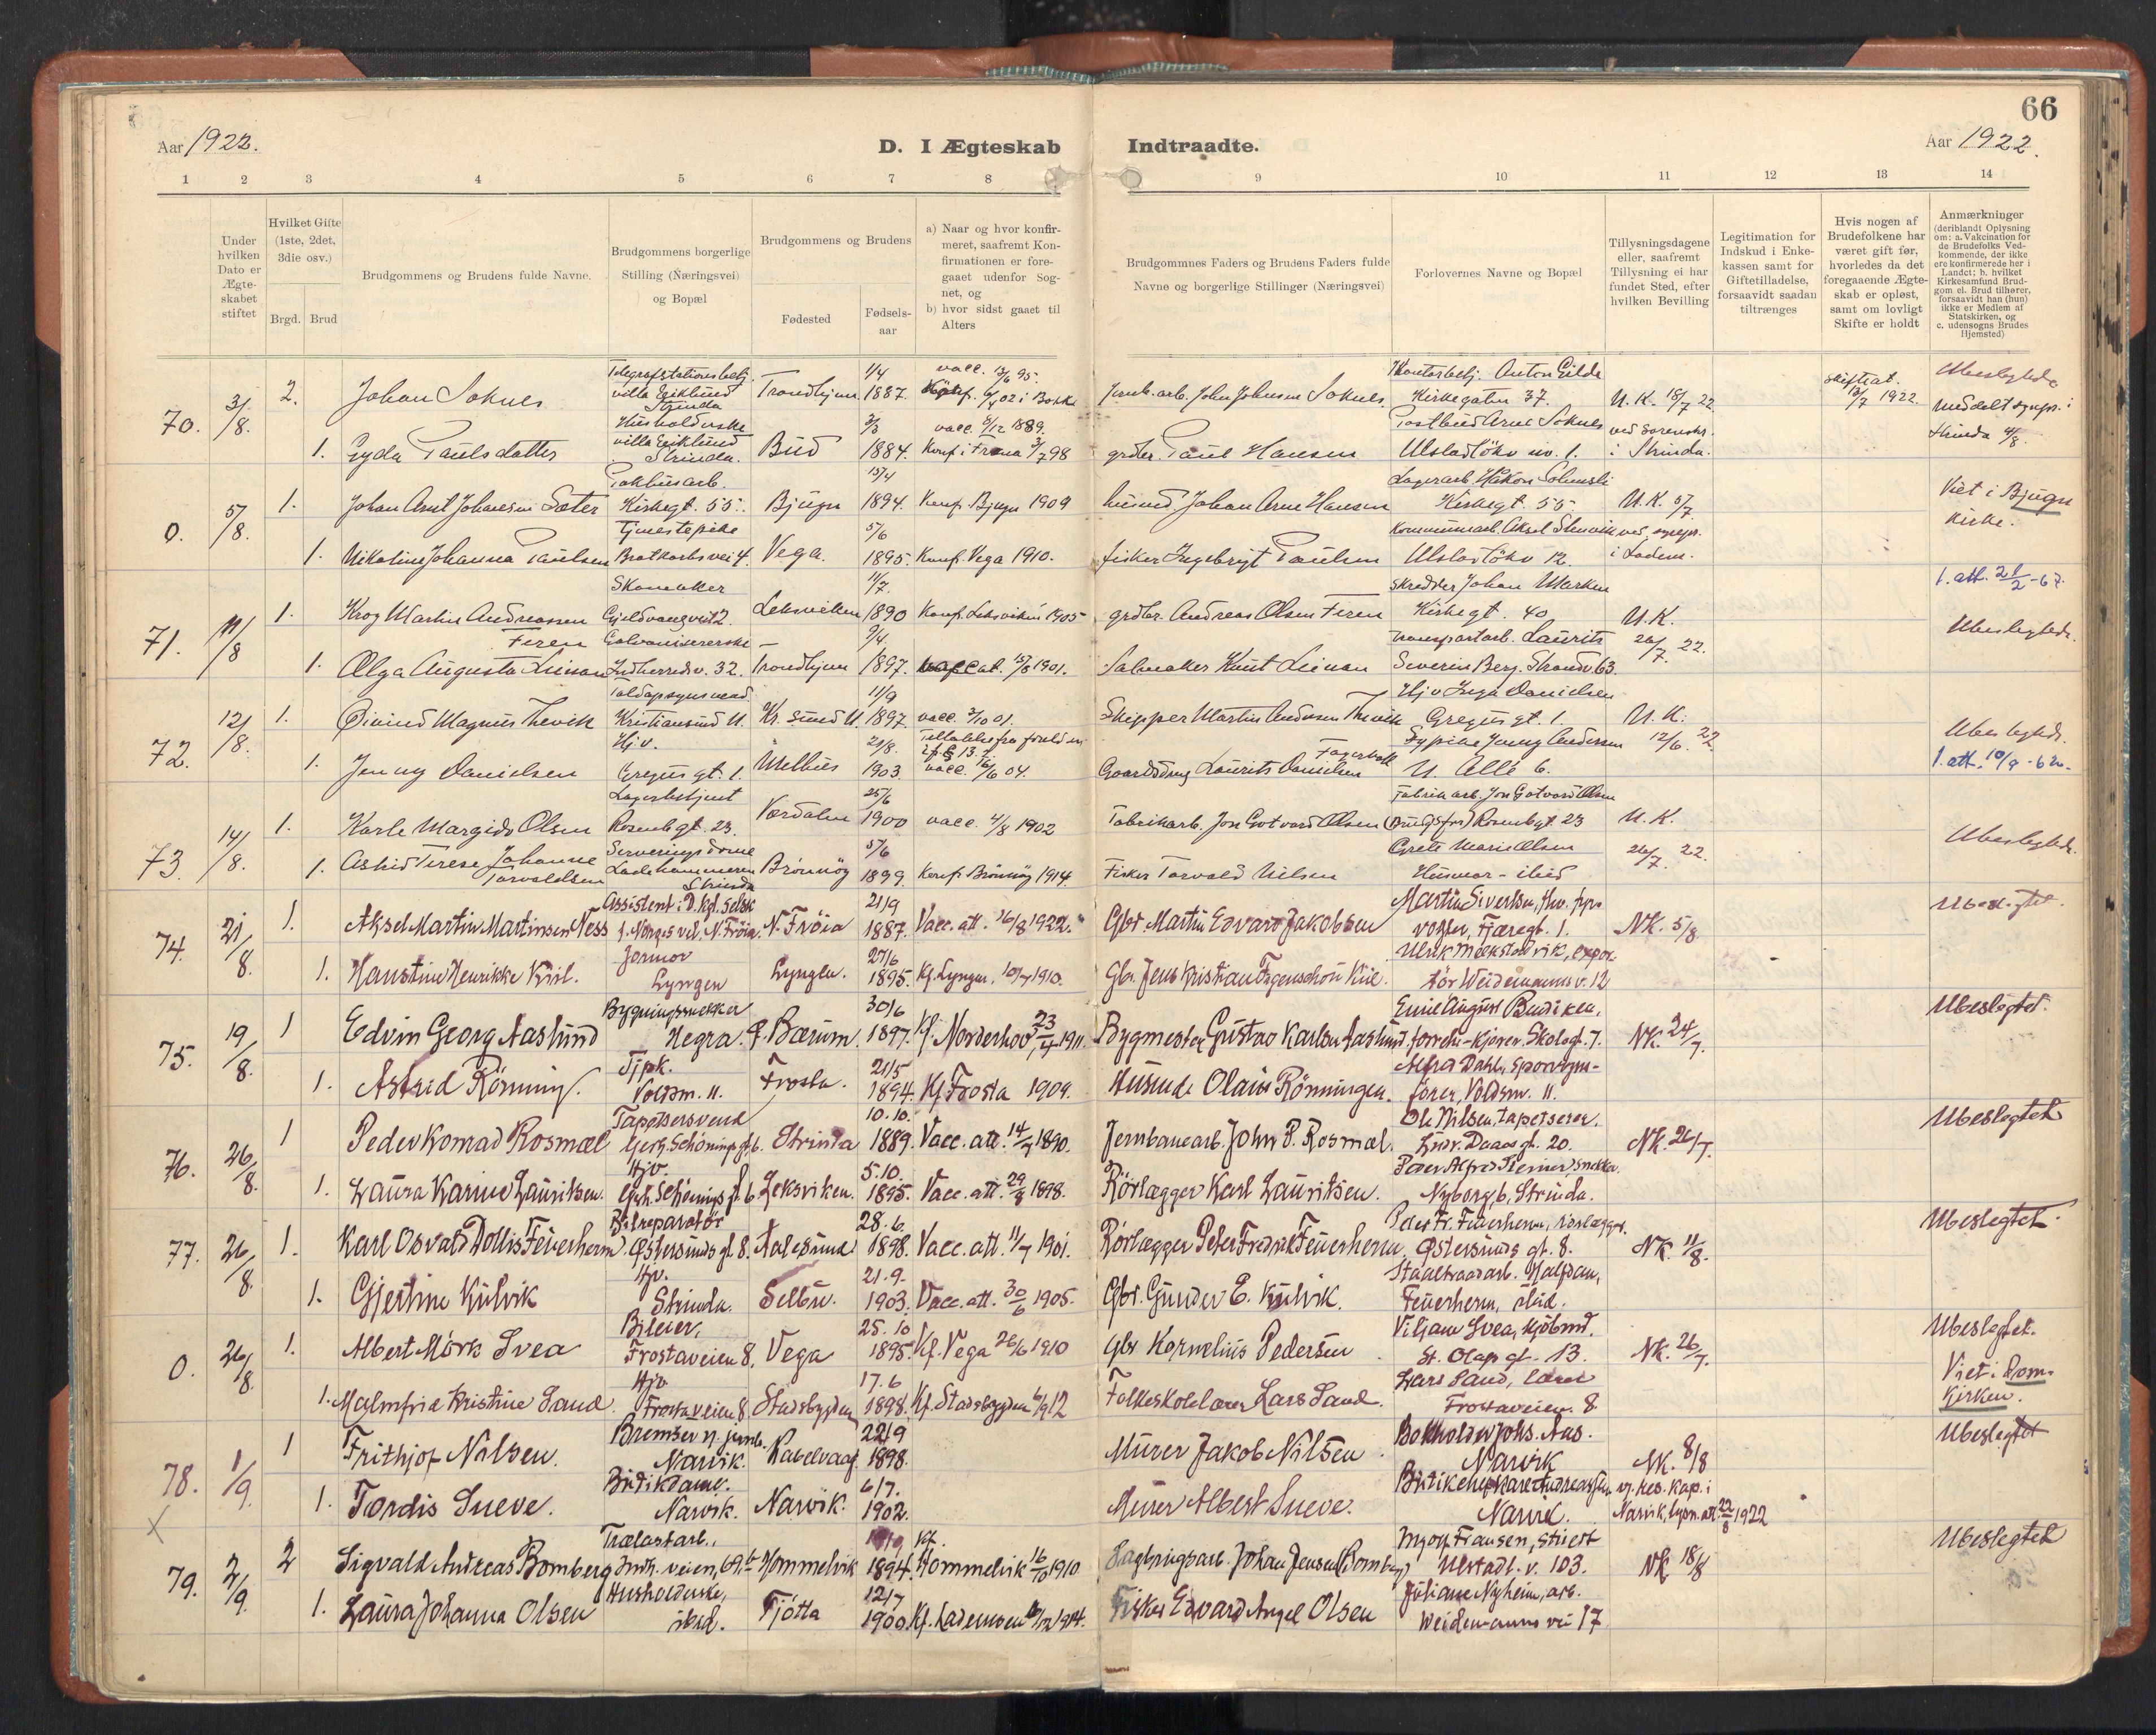 66
Aar 1922.
D. I Ægteskab Indtraadte.
Aar 1922.
1 2 3 4 5 6 7 8 9 10 11 12 13 14
Under hvilken Dato er Ægteskabet stiftet
Hvilket Gifte (1ste, 2det, 3die osv.)
Brgd. Brud
Brudgommens og Brudens fulde Navne.
Brudgommens borgerlige Stilling (Næringsvei) og Bopæl
Brudgommens og Brudens
Fødested
Fødselsaar
a) Naar og hvor konfirmeret, saafremt Konfirmationen er foregaaet udenfor Sognet, og
b) hvor sidst gaaet til Alters
Brudgommnes Faders og Brudens Faders fulde Navne og borgerlige Stillinger (Næringsvei)
Forlovernes Navne og Bopæl
Tillysningsdagene eller, saafremt Tillysning ei har fundet Sted, efter hvilken Bevilling
Legitimation for Indskud i Enkekassen samt for Giftetilladelse, forsaavidt saadan tiltrænges
Hvis nogen af Brudefolkene har været gift før, hvorledes da det foregaaende Ægteskab er opløst, samt om lovligt Skifte er holdt
Anmærkninger (deriblandt Oplysning om: a. Vakcination for de Brudefolks Vedkommende, der ikke ere konfirmerede her i Landet; b. hvilket Kirkesamfund Brudgom el. Brud tilhører, forsaavidt han (hun) ikke er Medlem af Statskirken, og c. udensogns Brudes Hjemsted)
Telegrafstationsbetj. 1/4 vacc. 13/6 95. Kontorbetj. Anton Gilde Ubeslegtede
70. 3/8. 2. Johan Soknes villa Eiklund Strinda Trondhjem 1887. Jernb. arb. John Johnsen Soknes. Kirkegaten 37. U. K. 18/7 22. skifteat. 13/7 1922.
Husholderske 3/3 vacc. 6/12 1889. Postbud Arne Soknes ved sorenskr.
1. Gyda Paulsdatter villa Eiklund Strinda. Bud 1884. Konf. i Fræna 3/7 98 grdbr. Paul Hansen i Strinda. Strinda 4/8.
Pakhusarb. 15/4
0. 5/8. 1. Johan Arnt Johansen Sæter Kirkegt. 55. Bjugn 1894. Konf. Bjugn 1909 husmd. Johan Arne Hansen Kirkegt. 55 U. K. 5/7 Viet i Bjugn kirke.
Tjenestepike 5/6
1. Nikoline Johanna Paulsen Bratsbergvei 4. Vega. 1895. Konf. Vega 1910. fisker Ingebrigt Paulsen i Ladem.
1. att. 21/2 -67.
Skomaker 11/7. Skredder Johan Marken
71. 11/8 1. Krog Martin Andreassen Feren Leksviken 1890 Konf. Leksviken 1905 grdbr. Andreas Olsen Feren Kirkegt. 40 U. K. Ubeslegtede.
9/4. Transportarb. Laurits 20/7. 22.
1. Olga Augusta Leinan Indherredsv. 32. Trondhjem 1897. 15/8 1901. Salmaker Knut Leinan Severin Berg. Strandv. 63.
11/9 Hjv Inga Danielsen
72. 12/8. 1. Øivind Magnus Thevik Kristiansund N. Kr. sund N. 1897. vacc. 2/10 01. Skipper Martin Andersen Thevik Gregus gt. 1. U. K. Ubeslegtede.
Hjv. 21/8. Sypike Jenny Andersen 12/6. 22
1. Jenny Danielsen Gregus gt. 1. Melhus 1903. vacc. 16/6 04. Laurits Danielsen Fagerbakk N. Allé 6. 1. att. 10/9 -620.
Lagerbetjent 25/6 Fabrikarb. Jon Gotvard Olsen
73. 14/8. 1. Karle Margido Olsen Rosenb gt. 23. Værdalen 1900 vacc. 4/8 1902 Fabrikarb. Jon Gotvard Olsen Rosenb gt 23 U. K. Ubeslegtede.
Serveringsdame 5/6 Grete Marie Olsen 26/7. 22.
1. Astrid Terese Johanne Torvaldsen Ladehammeren Strinda Brönnöy 1899. Konf. Brönnöy 1914. Fisker Torvald Nilsen Husmor - ibid
Assistent i D. kgl. Selsk 21/9 Martin Sivertsen,
74. 21/8. 1. Aksel Martin Martinsen Ness f. Norges vel. N. Fröia. N. Fröia 1887. Vacc. att. 16/8 1922. Gbr. Martin Edvard Jakobsen vokter, Fjæregt. 1. NK. 5/8 Ubeslegtet.
Jormor 27/6
1. Haustine Henrikke Kiil. Lyngen Lyngen. 1895. Kf. Lyngen. 10/7 1910. Gbr. Jens Kristian Fagenschou Kiil. Weidemannsv. 12
Bygningssnekker 30/6 Emil August Bendiken,
75. 19/8. 1 Edvin Georg Aaslund Hegra. Bærum. 1897. Kf. Norderhov 23/4 1911. Bygmester Gustav Karlsen Aaslund. Skolegt. 7. NK. 24/7. Ubeslegtet.
Tjpk. 21/5 Alfred Dahl, sporvogns-
1. Astrid Rönning. Voldsm. 11. Frosta. 1894. Kf. Frosta 1909. Husmd. Olaius Rönningen. fører, Voldsm. 11.
Tapetsersvend 10.10. Ole Nilsen, tapetserer,
76. 26/8. 1 Peder Konrad Rosmæl Gerh. Schönings gt. 6. Strinda 1889. Vacc. att. 14/7 1890. Jernbanearb. John P. Rosmæl. Ludv. Daaes gt. 20. NK. 26/7. Ubeslegtet
Hjv. 5.10. snekker.
1. Laura Karine Lauritsen. Gerh. Schönings gt. 6 Leksviken. 1895. Vacc. att. 29/8 1898. Rörlægger Karl Lauritsen. Nyborg 6, Strinda.
Bilreparatör 28.6. Peter Fr. Feuerherm, rörlægger.
77. 26/8. 1. Karl Osvald Dollis Feuerherm Østersunds gt. 8. Aalesund 1898. Vacc. att. 11/7 1901. Rörlægger Peter Fredrik Feuerherm, Østersunds gt. 8. NK. 11/8. Ubeslegtet.
Hjv. 21.9. Staaltraadarb. Halfdan,
1. Gjertine Kulvik Strinda. Selbu. 1903. Vacc. att. 30/6 1905. Gbr. Gunder E. Kulvik. Feuerherm, ibid.
Bileier, 25.10 Viljam Svea, kjöbmd.
0. 26/8. 1. Albert Mörk Svea Frostaveien 8, Vega 1895. Kf. Vega 26/6 1910 Gbr. Kornelius Pedersen St. Olaps gt. 13. NK. 26/7. Ubeslegtet.
Hjv 17.6 Lars Sand, lærer Viet i Dom-
1. Malmfrid Kristine Sand. Frostaveien 8. Stadsbygden 1898. Kf. Stadsbygden 6/9 12 Folkeskolelærer Lars Sand. Frostaveien 8 kirken.
Bremser v. jernb. 22/9 Bokholder Johs. Aas.
78. 1/9. 1 Frithjof Nilsen. Narvik. Kabelvaag. 1898. Murer Jakob Nilsen Narvik NK. 8/8 Ubeslegtet
Butikdame. 6/7. v. res. kap. i
X 1. Tordis Sneve. Narvik. Narvik. 1902. Murer Albert Sneve. Narvik. Narvik, lysn. att. 22/8 1922
Trælastarb., Kf. Ingolf Fransen,
79. 2/9. 2 Sigvald Andreas Bomberg Indh. veien, 69b Hommelvik 1894. Hommelvik 16/10 1910 Johan Jensen (Bomberg) Ulstadl. v. 103. NK 18/8 Ubeslegtet
Husholderske, 12/7 Juliane Nyheim, arb.
1. Laura Johanna Olsen ibid. Tjötta 1900 Kf. Lademoen 1914. Fisker Edvard Angel Olsen Weidemanns vei 17